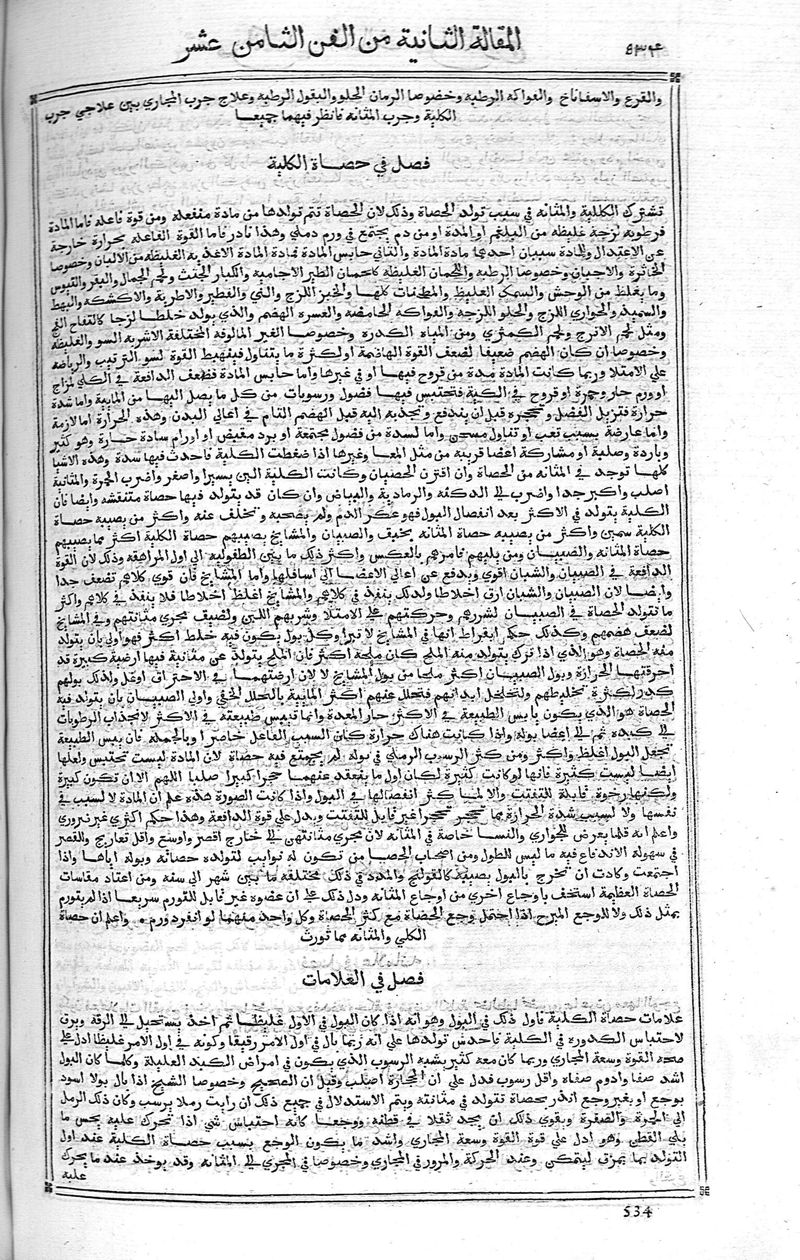 المقالة الثانية من الفن الثامن عشر ٥٣٤
والقرع والاسفاناخ والفواكه الرطبة وخصوصا الرمان الحلو والبقول الرطبة وعلاج جرب المجاري بين علاجي جرب
الكلية وجرب المثانة فانظر فيهما جميعا
فصل في حصاة الكلية
تشترك الكلية والمثانة في سبب تولد الحصاة وذلك لان الحصاة تتم تولدها من مادة منفعلة ومن قوة فاعلة فاما المادة
فرطوبة لزجة غليظة من البلغم او المدة او من دم يجتمع في ورم دملي وهذا نادر فاما القوة الفاعلة فحرارة خارجة
عن الاعتدال وللمادة سببان احدهما مادة المادة والثاني حابس المادة فمادة المادة الاغذية الغليظة من الالبان وخصوصا
الخاثرة والاجبان وخصوصا الرطبة واللحمان الغليظة كلحمان الطير الاجامية والكبار الجثث ولحم الجمال والبقر والتيوس
وما يغلظ من الوحش والسمك الغليظ كلها والخبز اللزج والني والفطير والاطرية والاكشكة والبهط
والسميد والحواري اللزج والحلو اللزجة والفواكه الحامضة والعسرة الهضم والذي يولد خلطا لزجا كالتفاح الفج
ومثل لحم الاترج ولحم الكمثري ومن المياه الكدرة وخصوصا الغير المالوفة المختلفة الاشربة السو والغليظة
وخصوصا ان كان الهضم ضعيفا لضعف القوة الهاضمة او لكثرة ما يتناول فيهبط القوة لسو الترتيب والرياضة
علي الامتلا وربما كانت المادة مدة من قروح فيها او في غيرها واما حابس المادة فضعف الدافعة في الكلي لمزاج
او ورم حار وحمرة او قروح في الكلية فتحتبس فيها فضول ورسوبات من كل ما يصل اليها من المايية واما شدة
حرارة فتربل الفضل وتحجره قبل ان يندفع وتجذبه اليه قبل الهضم التام في اعالي البدن وهذه الحرارة اما لازمة
واما عارضة بسبب تعب او تناول مسخن واما لسدة من فضول مجتمعة او برد مقبض او اورام سادة حارة وهو كثير
وباردة وصلبة او مشاركة اعضا قريبة من مثل المعا وغيرها اذا ضغطت الكلية فاحدث فيها سدة وهذه الاشيا
كلها توجد في المثانة من الحصاة وان اقترن الحصيان وكانت الكلية الين يسيرا واصغر واضرب الي الحمرة والمثانية
اصلب واكبر جدا واضرب الي الدكنة والرمادية والبياض وان كان قد يتولد فيها حصاة متفتتة وايضا فان
الكلية يتولد في الاكثر بعد انفصال البول فهو عكر الدم ولم يصحبه وتخلف عنه واكثر من يصيبه حصاة
الكلية سمين واكثر من يصيبه حصاة المثانة نحيف والصبيان والمشايخ يصيبهم حصاة الكلية اكثر مما يصيبهم
حصاة المثانة والصبيان ومن يليهم فامرهم بالعكس واكثر ذلك ما بين الطفولية الي اول المراهقة وذلك لان القوة
الدافعة في الصبيان والشبان اقوي ويدفع عن اعالي الاعضا الي اسافلها واما المشايخ فان قوي كلاهم تضعف جدا
وايضا لان الصبيان والشبان ارق اخلاطا ولذلك ينفذ في كلاهم والمشايخ اغلظ اخلاطا فلا ينفذ في كلاهم واكثر
ما تتولد الحصاة في الصبيان لشرههم وحركتهم علي الامتلا وشربهم اللبن ولضيق مجري مثانتهم وفي المشايخ
لضعف هضمهم وكذلك حكم ابقراط انها في المشايخ لا تبرا وكل بول يكون فيه خلط اكثر فهو اولي بان يتولد
منه الحصاة وهو الذي اذا ترك يتولد منه الملح كان ملحه اكثر فان الملح يتولد عن مايية فيها ارضية كبيرة قد
احرقتها الحرارة وبول الصبيان اكثر ملحا من بول المشايخ لا لان ارضيتهما في الاحتراق اوغل ولذلك بولهم
كدر لكثرة تخليطهم ولتخلخل ابدانهم فتحلل عنهم اكثر المايية بالتحلل الخفي واولي الصبيان بان يتولد فيه
الحصاة هو الذي يكون يابس الطبيعة في الاكثر حار المعدة وانما تيبس طبيعته في الاكثر لانجذاب الرطوبات
الي كبده ثم الي اعضا بوله واذا كانت هناك حرارة كان السبب الفاعل حاضرا وبالجملة فان يبس الطبيعة
تجعل البول اغلظ واكثر ومن كثر الرسوب الرملي في بوله لم يجتمع فيه حصاة لان المادة ليست تحتبس ولعلها
ايضا ليست كثيرة فانها لو كانت كثيرة لكان اول ما ينعقد عنهما حجرا كبيرا صلبا اللهم الا ان تكون كبيرة
ولكنها رخوة قابلة للتفتت والا لما كثر انفصالها في البول واذا كانت الصورة هذه علم ان المادة لا لسبب في
نفسها ولا لسبب شدة الحرارة مما تتحجر تحجرا غير قابل للتفتت ويدل علي قوة الدافعة وهذا حكم اكثري غير ضروري
واعلم انه قلما يعرض للجواري والنسا خاصة في المثانة لان مجري مثانتهن الي خارج اقصر واوسع واقل تعاريج وللقصر
في سهولة الاندفاع فيه ما ليس للطول ومن اصحاب الحصا من تكون له نوايب لتولده حصاته وبوله اياها واذا
اجتمعت وكادت ان تخرج بالبول يصيبه كالقولنج والمدد في ذلك مختلفة ما بين شهر الي سنة ومن اعتاد مقاسات
الحصاة العظيمة استخف باوجاع اخري من اوجاع المثانة ودل ذلك علي ان عضوه غير قابل للتورم سريعا اذا لم يتورم
بمثل ذلك ولا للوجع المبرح اذا احتمل وجع الحصاة مع كثر الحصاة وكل واحد منهما لو انفرد ورم واعلم ان حصاة
الكلي والمثانة مما تورث
فصل في العلامات
علامات حصاة الكلية فاول ذلك في البول وهو انه اذا كان البول في الاول غليظا ثم اخذ يستحيل الي الرقة ويرق
لاحتباس الكدورة في الكلية فاحدس تولدها علي انه ربما بال في اول الامر رقيقا وكونه في اول الامر غليظا ادل علي
صحة القوة وسعة المجاري وربما كان معه كثير يشبه الرسوب الذي يكون في امراض الكبد العليلة وكلما كان البول
اشد صفا وادوم صفاه واقل رسوب فدل علي ان الحجارة اصلب وقيل ان الصحيح وخصوصا الشيخ اذا بال بولا اسود
بوجع او بغير وجع انذر بحصاة تتولد في مثانته ويتم الاستدلال في جميع ذلك ان رايت رملا يرسب وكان ذلك الرمل
الي الحمرة والصفرة ويقوي ذلك ان يجد ثقلا في قطنه ووجعا كانه احتباس شي اذا تحرك عليه يحس ما
يلي القطن وهو ادل علي قوة القوة وسعة المجاري واشد ما يكون الوجع بسبب حصاة الكلية عند اول
التولد بما يمزق ليتمكن وعند الحركة والمرور في المجاري وخصوصا في المجري الي المثانة وقد يوخذ عند ما يحرك
عليه
534